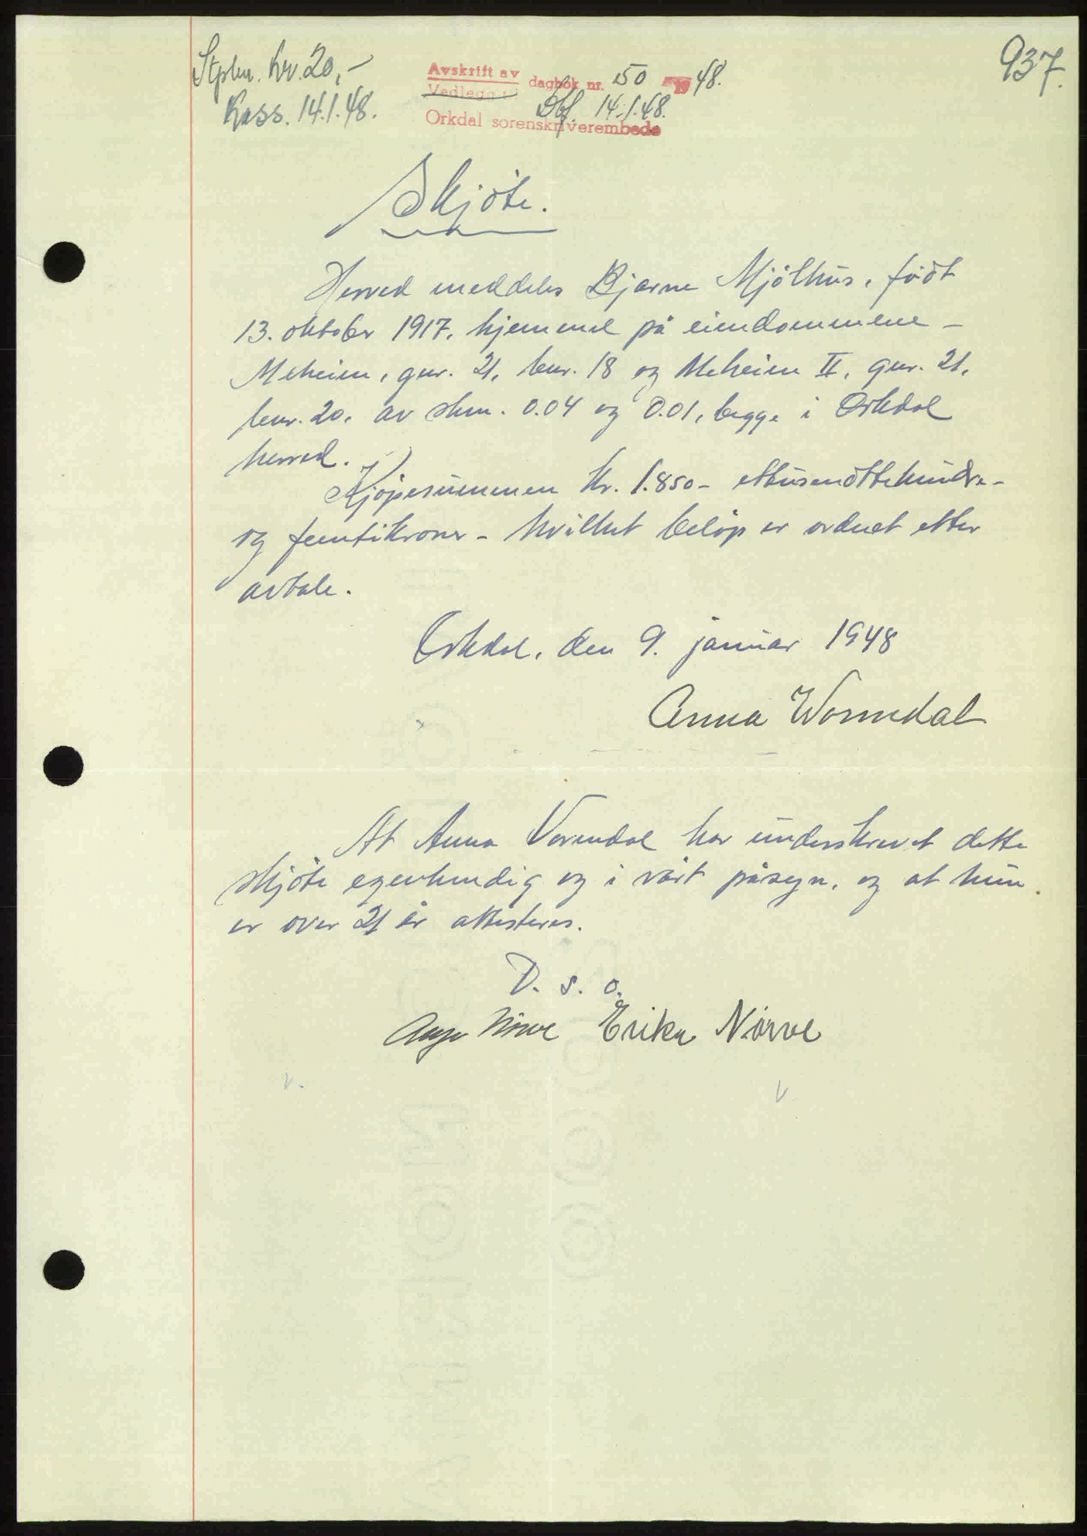 Stplm. kr. 20,-
Kass. 14.1.48.
Avskrift av dagbok nr. 150 1948.
Vedlegg til Dbf. 14.1.48.
Orkdal sorenskriverembede
937.
Skjöte.
Herved meddeles Bjarne Mjölhus, födt
13. oktober 1917, hjemmel på eiendommene -
Meheim, gnr. 21, bnr. 18 og Meheim II, gnr. 21,
bnr. 20, av skm. 0.04 og 0.01, begge i Orkdal
herred.
Kjöpesummen kr. 1.850- ettusenåttehundre-
og femtikroner - hvilket belöp er ordnet etter
avtale.
Orkdal, den 9. januar 1948
Anna Wormdal
At Anna Vormdal har underskrevet dette
skjöte egenhendig og i vårt påsyn, og at hun
er over 21 år attesteres.
D. s. o.
Erika Nörve